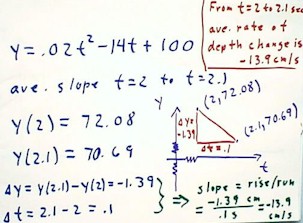 From t=2 to 2.1 sec
ave. rate of
depth change is
-13.9 cm/s
y = .02t² -14t + 100
ave. slope t=2 to t=2.1
y(2) = 72.08
y(2.1) = 70.69
Δy = y(2.1)-y(2) = -1.39
Δt = 2.1-2 = .1
y
(2,72.08)
Δy=
-1.39
(2.1,70.69)
Δt=.1
t
⇒ slope = rise/run
= -1.39 cm / .1 s = -13.9 cm/s